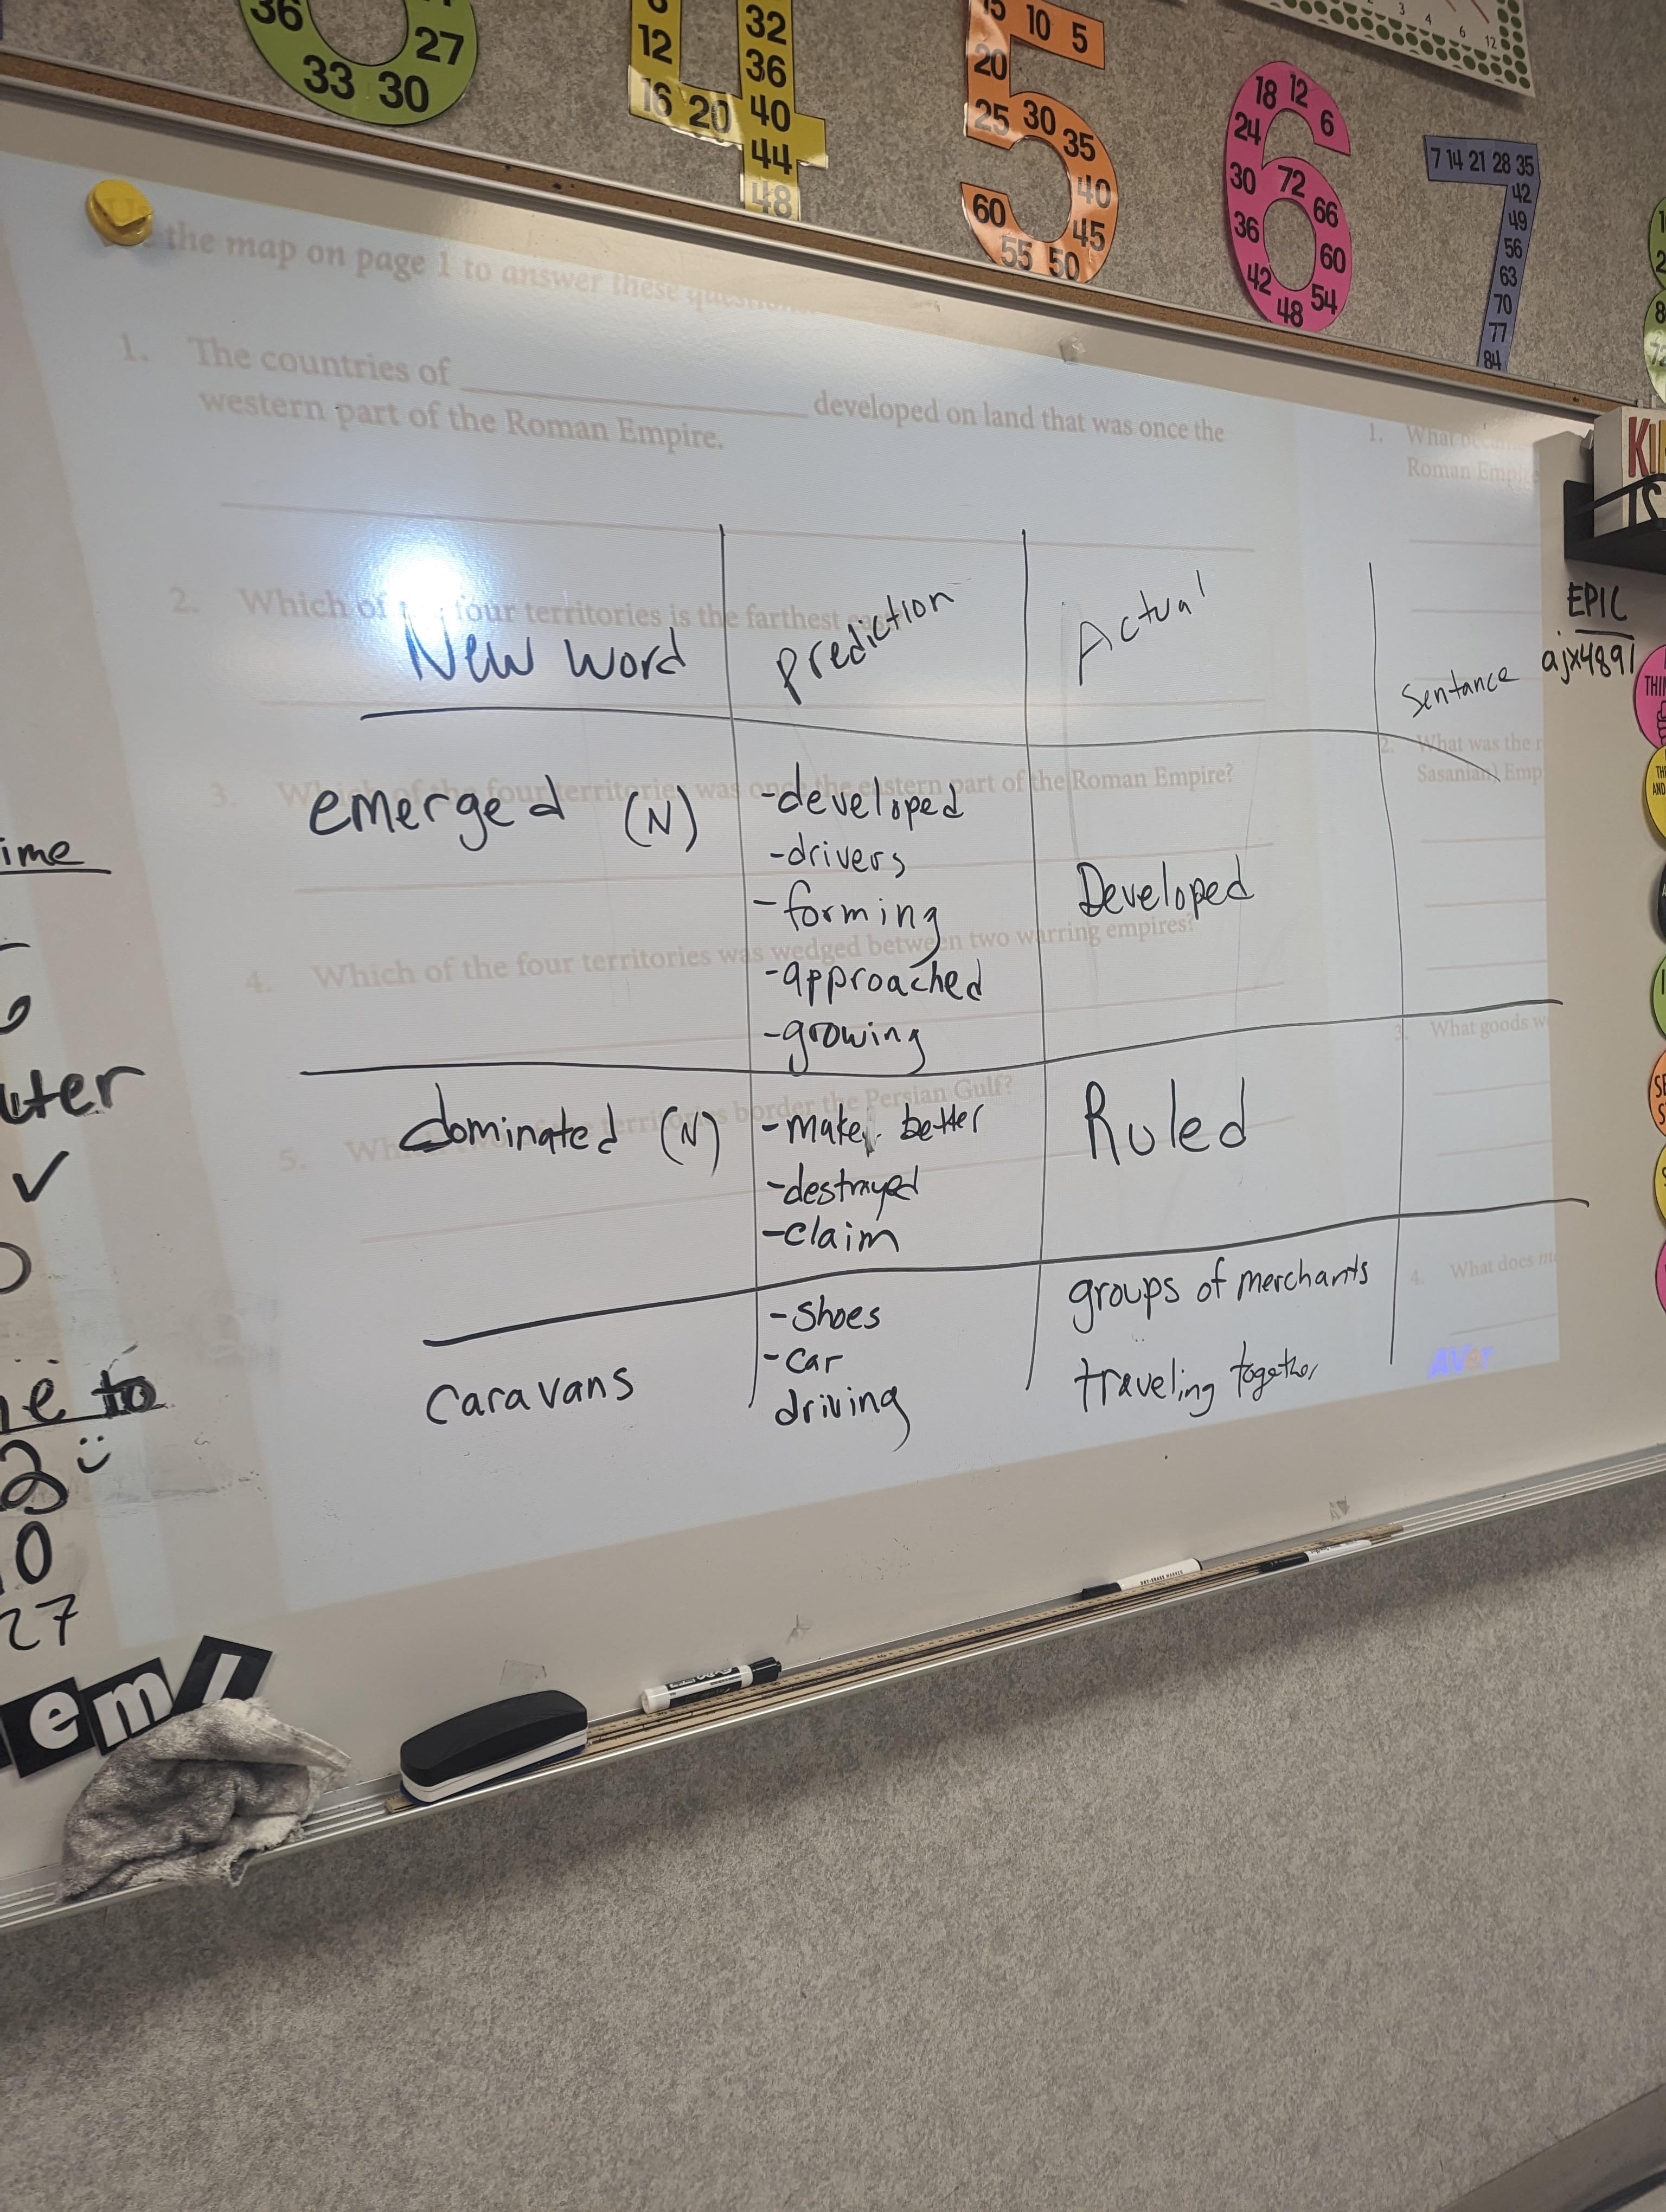 36 27
33 30
12 32
36
16 20 40
44
48
15 10 5
20
25 30 35
40
60 45
55 50
18 12 6
24
30 72 66
36 60
42 48 54
7 14 21 28 35
42
49
56
63
70
77
84
3 4 6 12
the map on page 1 to answer these
1. The countries of ____________ developed on land that was once the
western part of the Roman Empire.
2. Which of four territories is the farthest
3. Which of the four territories was once the eastern part of the Roman Empire?
4. Which of the four territories was wedged between two warring empires?
5. territories border the Persian Gulf?
1. What
Roman Empire
2. What was the
Sasanian) Emp
3. What goods
4. What does
New word prediction Actual Sentance
emerged (N)
-developed
-drivers
-forming
-approached
-growing
Developed
dominated (N)
-make better
-destroyed
-claim
Ruled
caravans
-shoes
-car
driving
groups of merchants
traveling together
EPIC
ajx4891
AVer
ime
✓
to
2
0
27
em!
KI
IS
THI